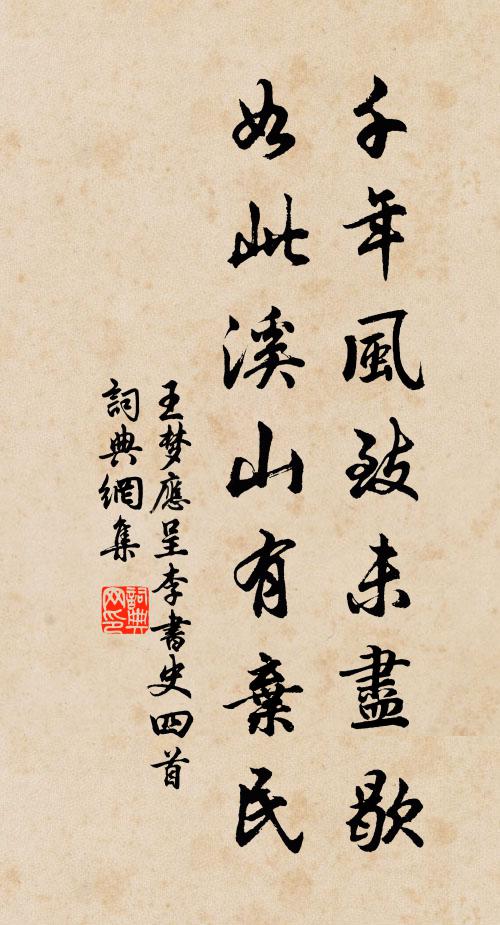 千年風致未盡歇
如此溪山有棄民
王梦應呈李書史四首
詞典網集
詞典网印